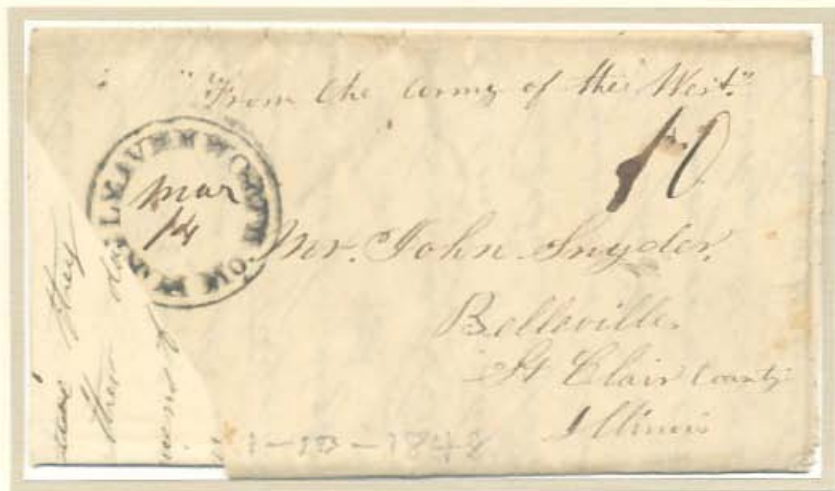 "From the Army of the West."
10
LEAVENWORTH MO.
Mar
14
Mr. John Snyder.
Belleville
St Clair County
Illinois
they
their
1-10-1848